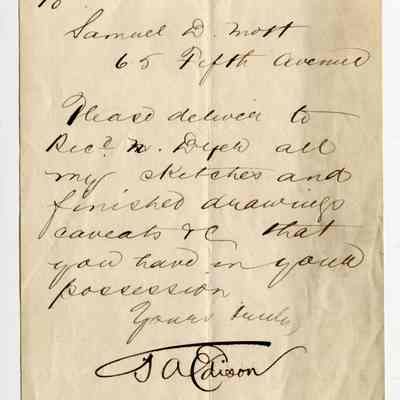 To
Samuel D. Mott
65 Fifth Avenue
Please deliver to
Ricd. N. Dyer all
my sketches and
finished drawings
caveats &c that
you have in your
possession
Yours truly
T A Edison